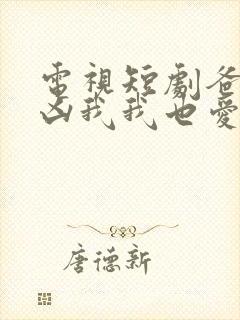 電視短劇爸
凶我我也愛
唐德新